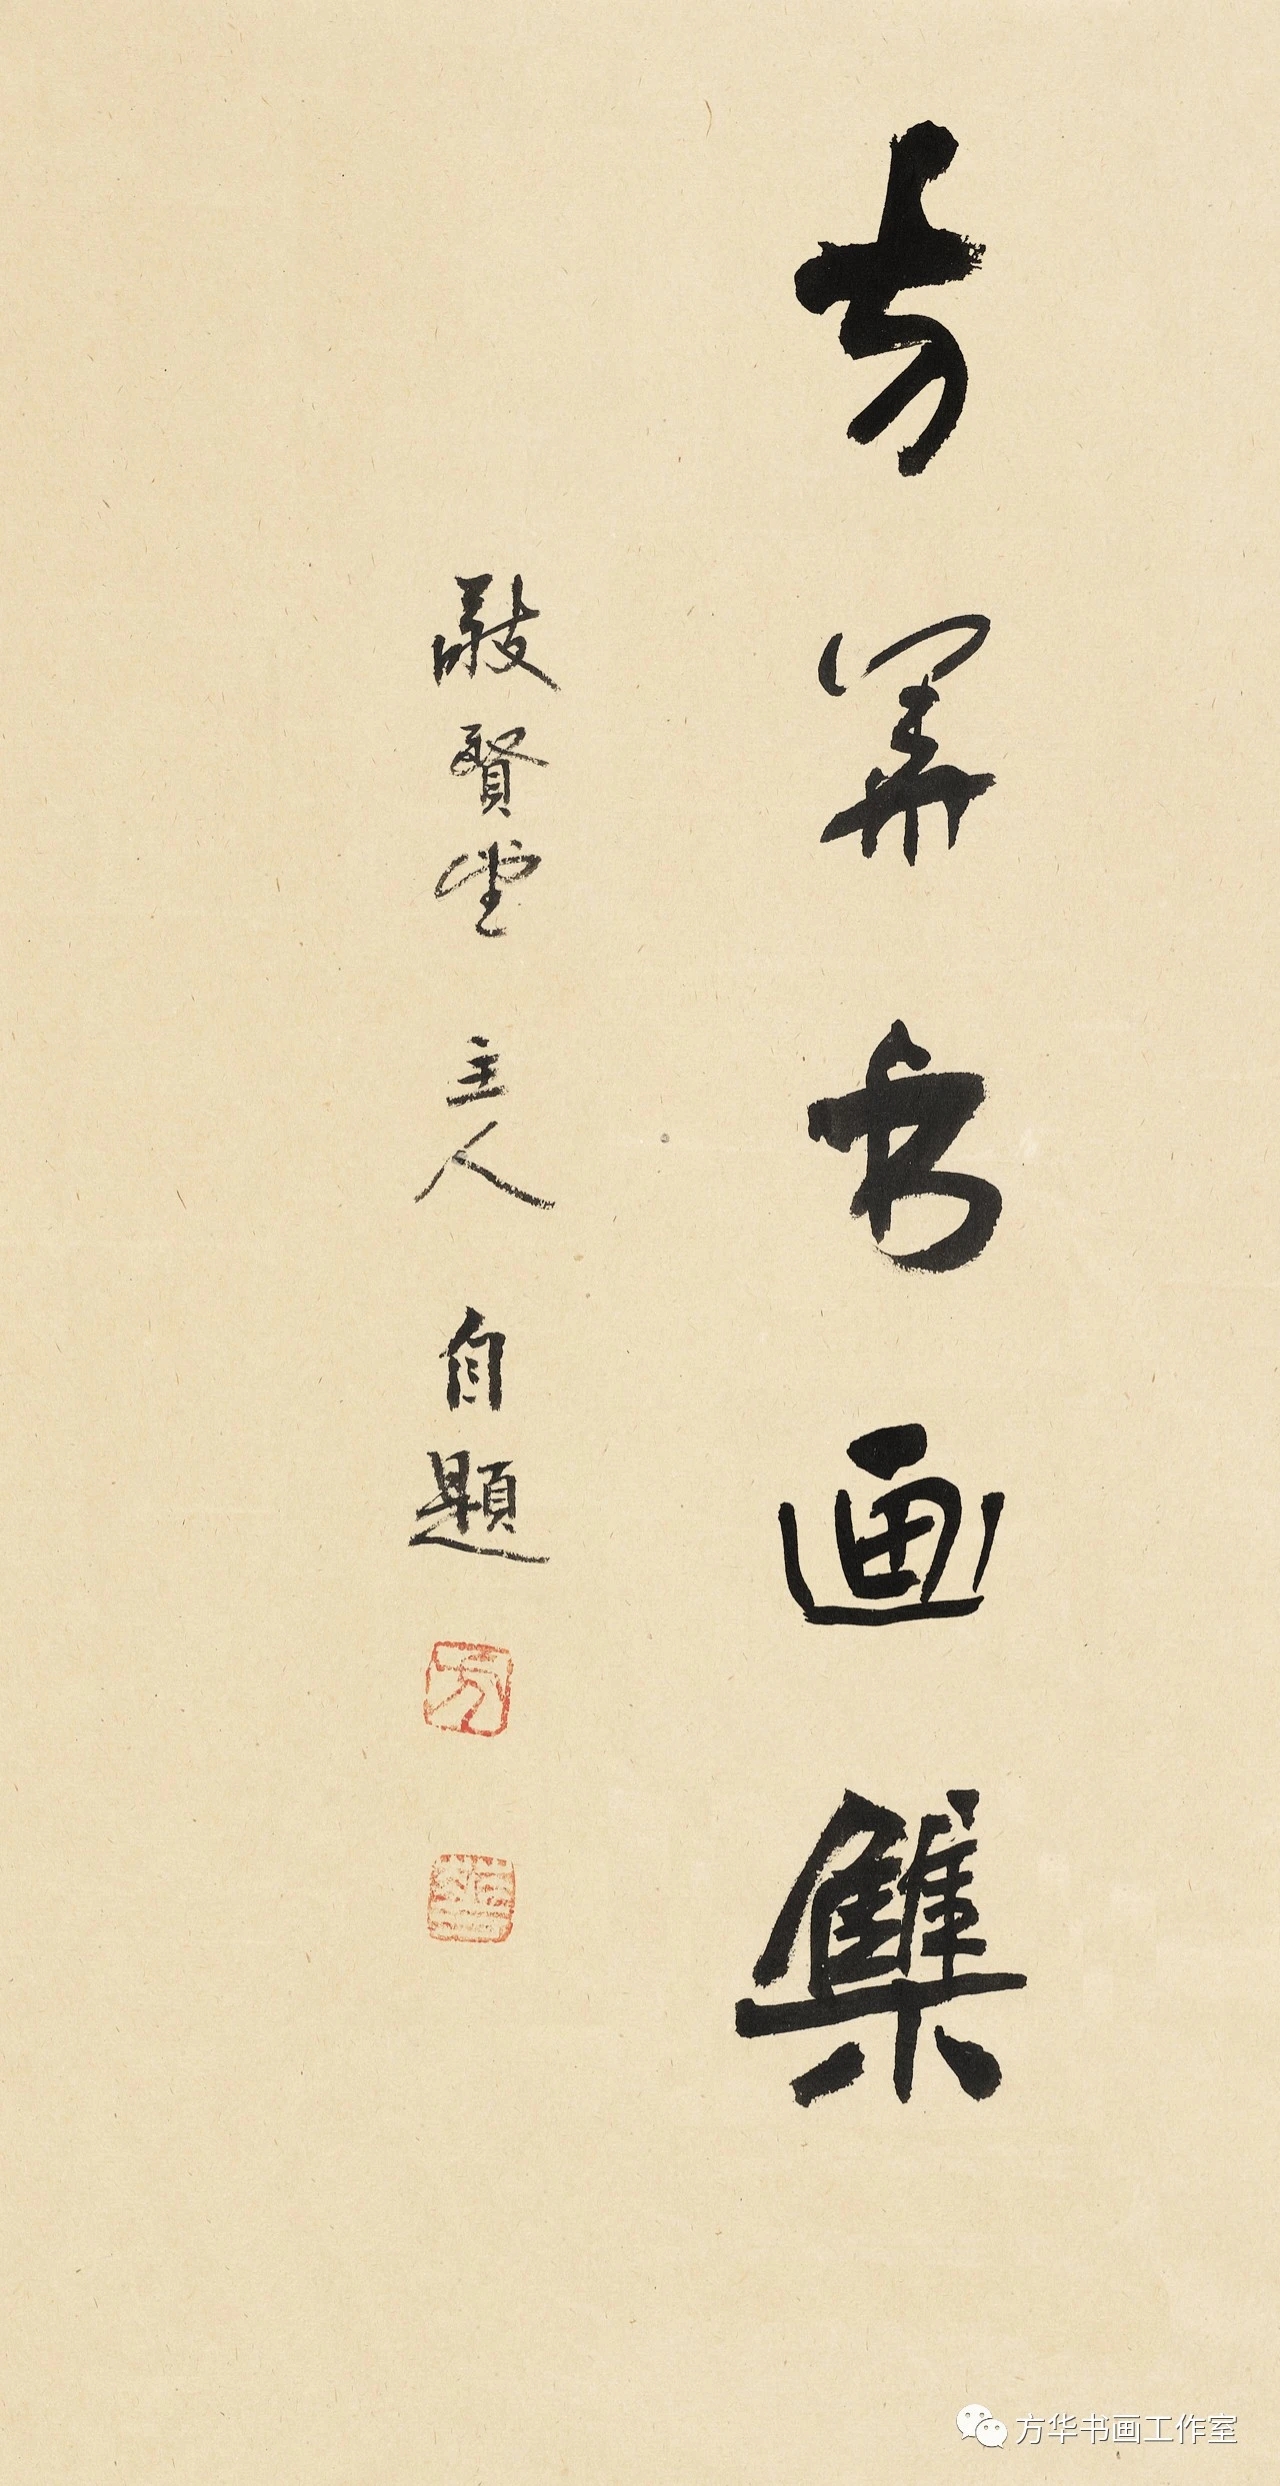 方華书画集
賢堂主人自題
方
方华书画工作室